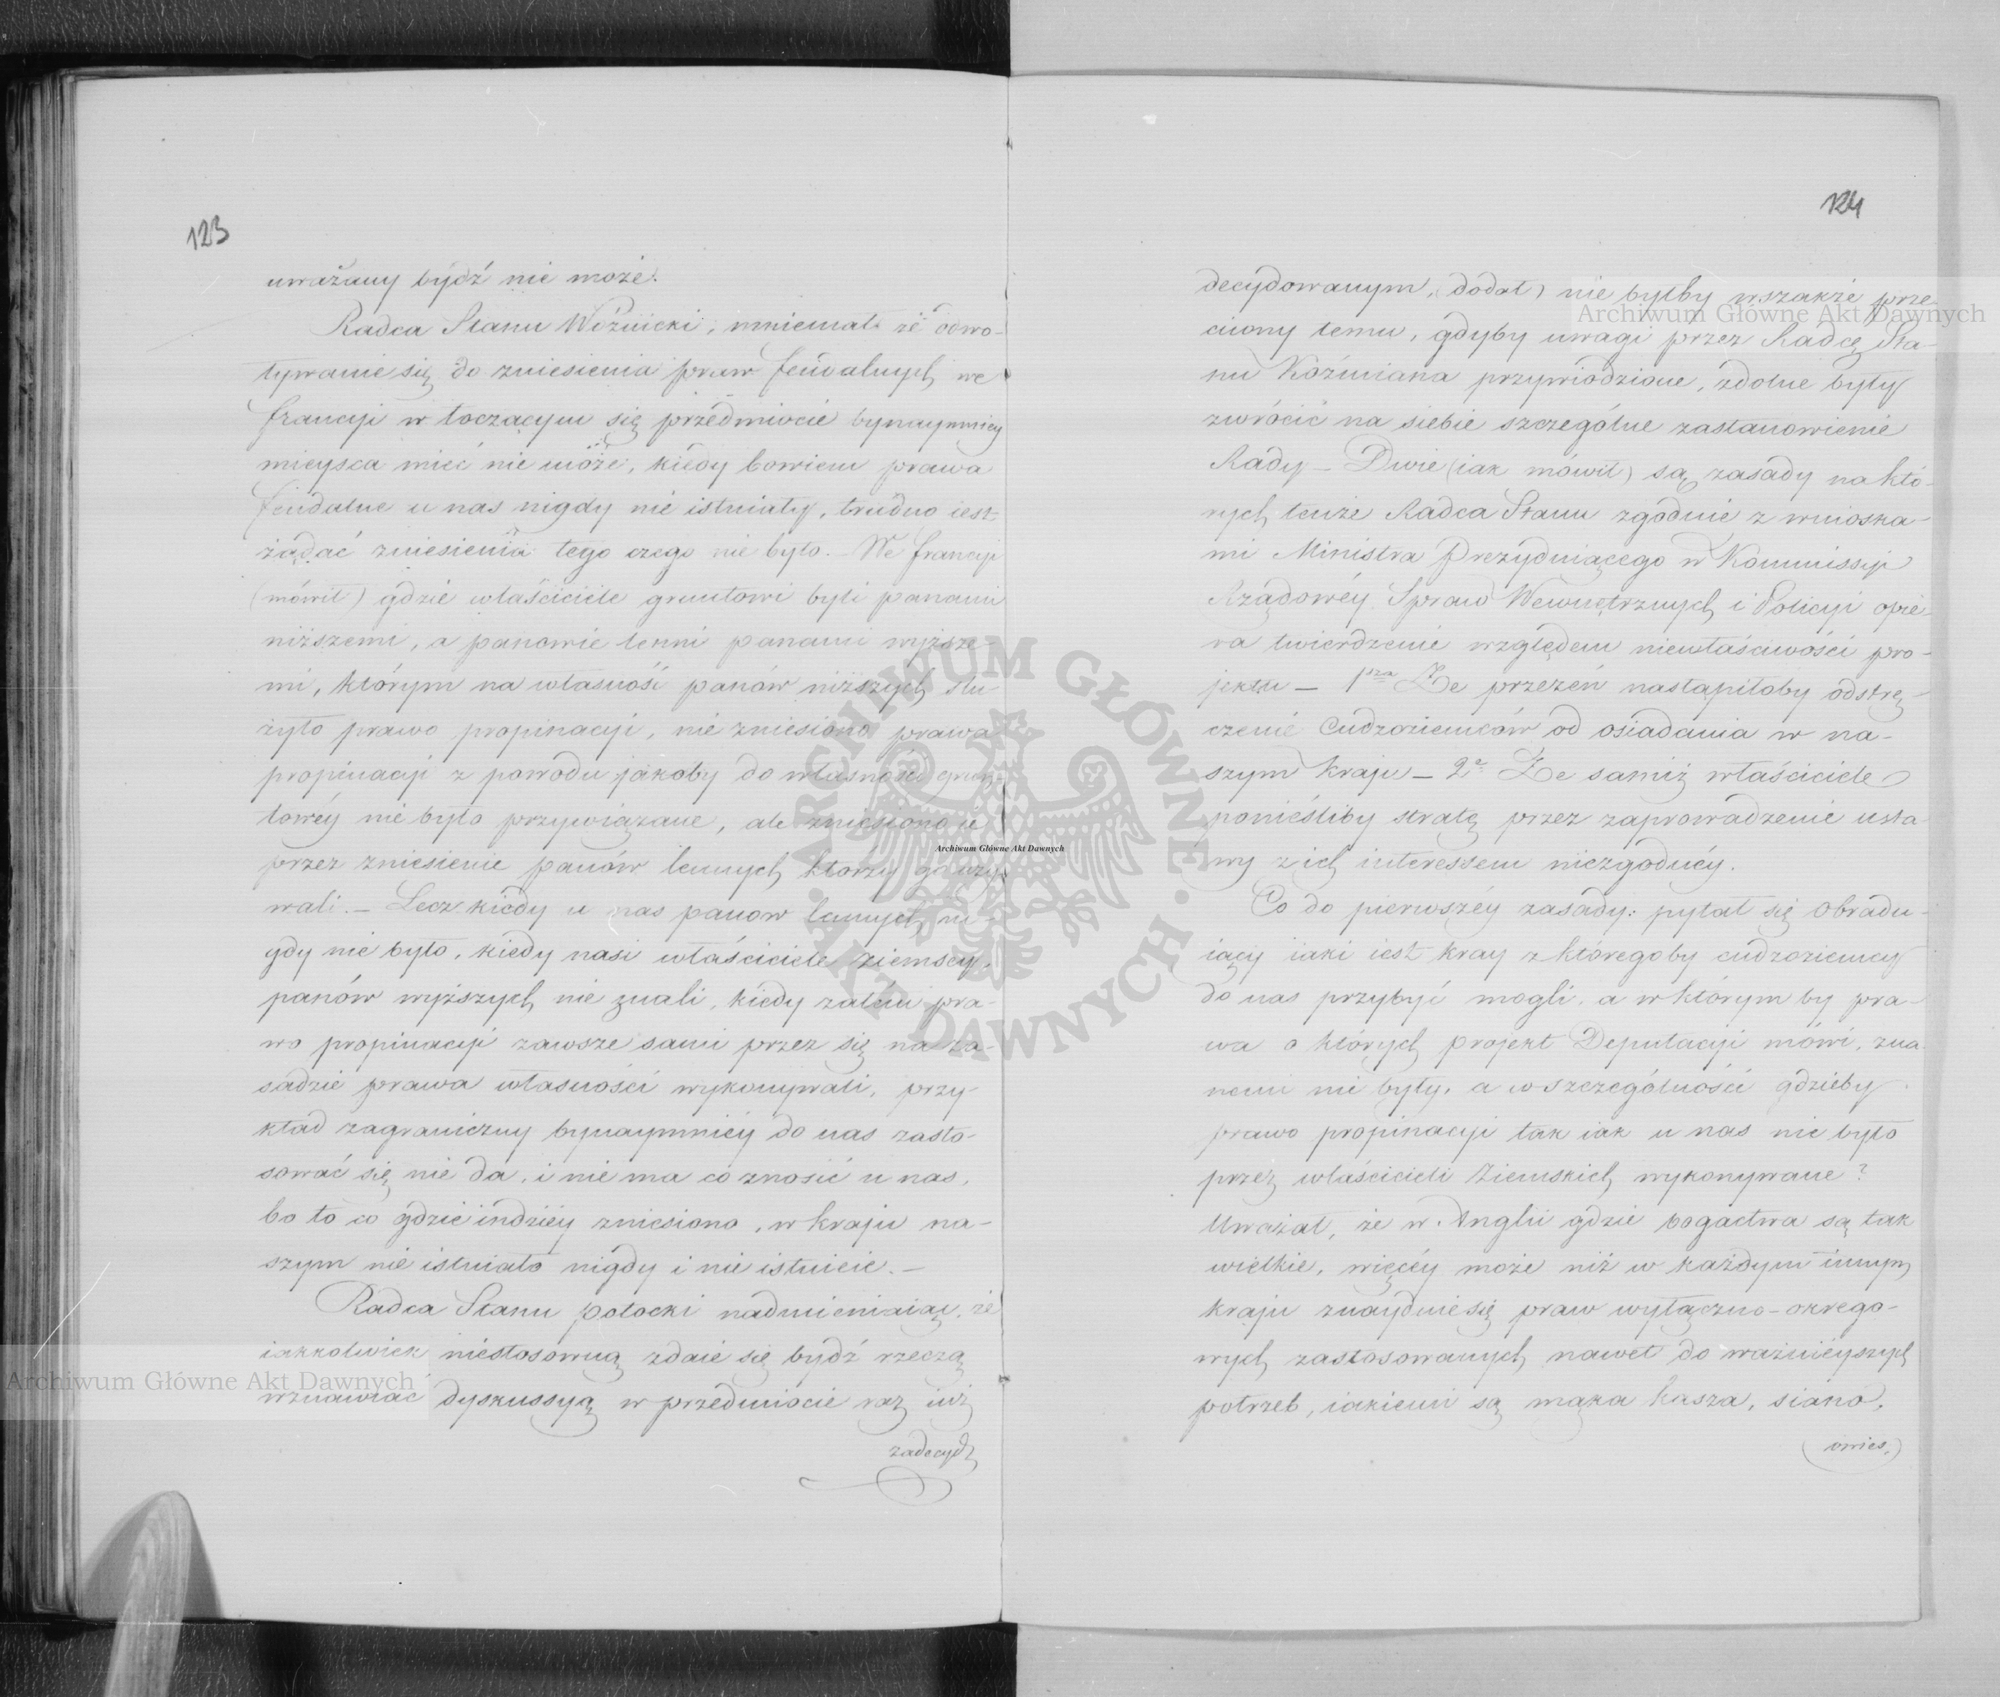 123
uważany bydź nie może.
Radca Stanu Woźnicki, mniemał że odwo-
ływanie się do zniesienia praw feudalnych we
francyi w toczącym się przedmiocie bynaymniey
mieysca mieć nie może, kiedy bowiem prawa
feudalne u nas nigdy nie istniały, trudno iest
żądać zniesienia tego czego nie było. We francyi
(mówił) gdzie właściciele gruntowi byli panami
niższemi, a panowie lenni panami wyższe-
mi, którym na własność panów niższych słu-
żyło prawo propinacyi, nie zniesiono prawa
propinacyi z powodu jakoby do własności grun-
towéy nie było przywiązane, ale zniesiono ie
przez zniesienie panów lennych którzy go uży-
wali. – Lecz kiedy u nas panow lennych ni-
gdy nie było, kiedy nasi właściciele ziemscy,
panów wyższych nie znali, kiedy zatém pra-
wo propinacyi zawsze sami przez się na za-
sadzie prawa własności wykonywali, przy-
kład zagraniczny bynaymniéy do nas zasto-
sować się nie da, i nie ma co znosić u nas,
bo to co gdzie indziéy zniesiono, w kraju na-
szym nie istniało nigdy i nie istnieie. –
Radca Stanu Potocki nadmieniaiąc, że
iakkolwiek niestosowną zdaie się bydź rzeczą
wznawiać dyskussyą w przedmiocie raz iuż
zadecyd
124
decydowanym, dodał, nie byłby wszakże prze
ciwny temu, gdyby uwagi przez Radcę Sta-
nu Koźmiana przywiedzione, zdolne były
zwrócić na siebie szczególne zastanowienie
Rady – Dwie (iak mówił) są zasady na któ-
rych tenże Radca Stanu zgodnie z wnioska-
mi Ministra Prezyduiącego w Kommissyi
Rządowéy Spraw Wewnętrznych i Policyi opie-
ra twierdzenie względem niewłaściwości pro-
jektu – 1sza Że przezeń nastąpiłoby odstrę-
czenie Cudzoziemców od osiadania w na-
szym kraju – 2a Że samiż właściciele
ponieśliby stratę przez zaprowadzenie usta-
wy z ich interessem niezgodnéy.
Co do pierwszéy zasady: pytał się Obradu-
iący iaki iest kray z któregoby cudzoziemcy
do nas przybyć mogli, a w którym by pra-
wa o których projekt Deputacyi mówi, zna
nemi nie były, a w szczególności gdzieby
prawo propinacyi tak iak u nas nie było
przez właścicieli Ziemskich wykonywane?
Uważał, że w Anglii gdzie bogactwa są tak
wielkie, więcéy może niż w każdym innym
kraju znayduie się praw wyłączno-okrego-
wych zastosowanych nawet do ważniéyszych
potrzeb, iakiemi są mąka kasza, siano,
owies,
Archiwum Główne Akt Dawnych
Archiwum Główne Akt Dawnych
Archiwum Główne Akt Dawnych
ARCHIWUM GŁÓWNE AKT DAWNYCH